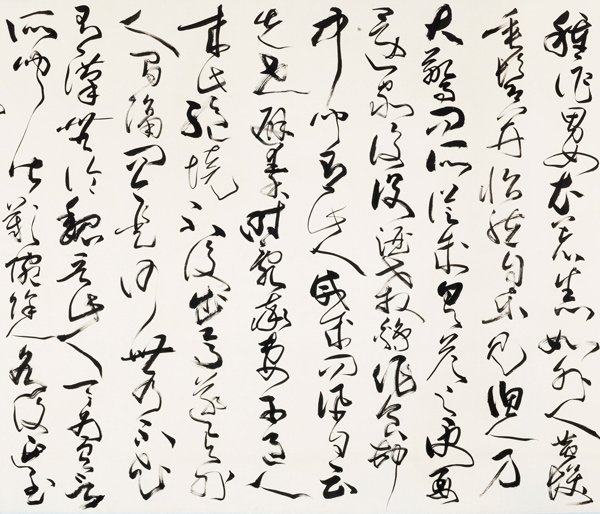 種作男女衣著悉如外人黃髮
垂髫并怡然自樂見漁人乃
大驚問所從來具答之便要
還家設酒殺雞作食村
中聞有此人咸來問訊自云
先世避秦時亂率妻子邑人
來此絕境不復出焉遂與外
人間隔問今是何世乃不知
有漢無論魏晉此人一一為具言
所聞皆歎惋餘人各復延至